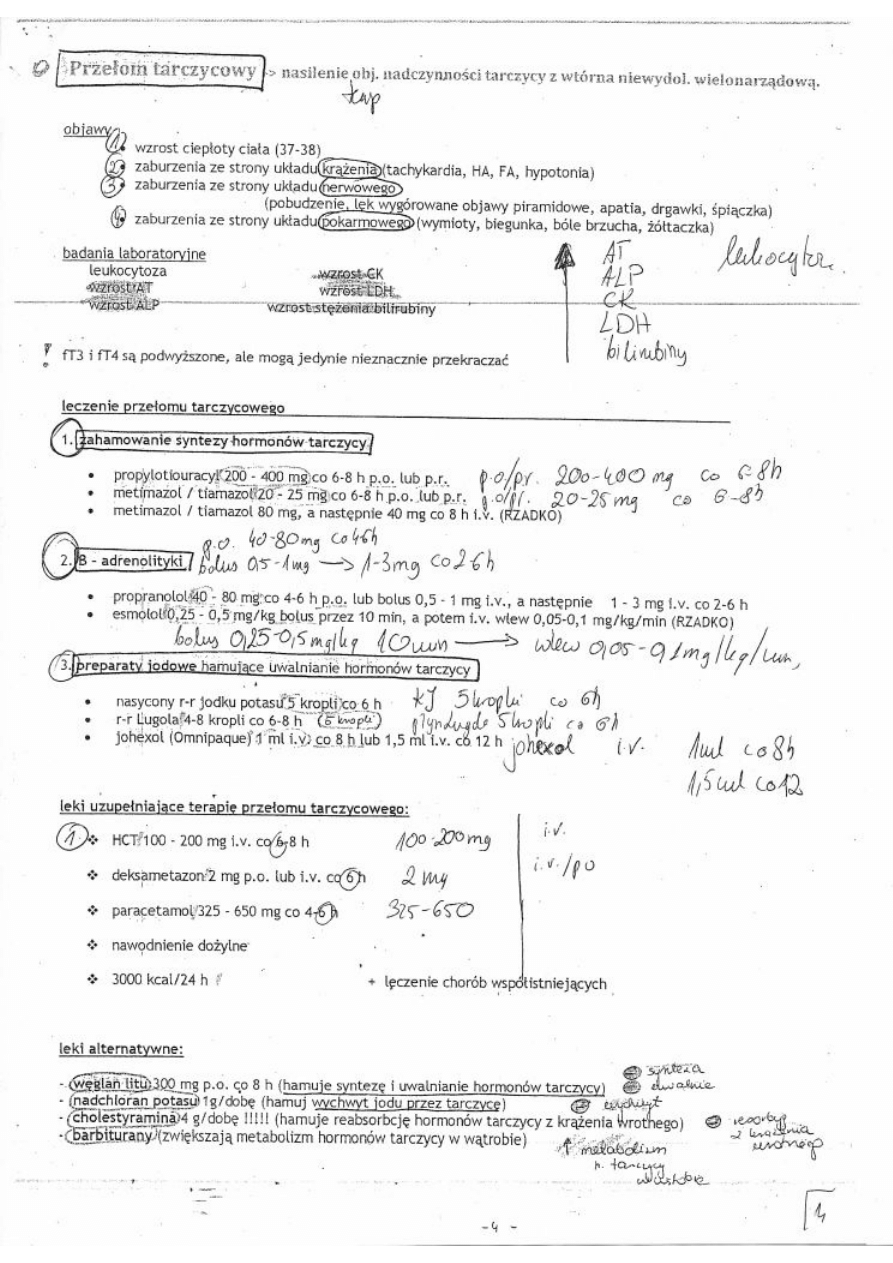 Przełom tarczycowy -> nasilenie obj. nadczynności tarczycy z wtórna niewydol. wielonarządową.
objawy
1. wzrost ciepłoty ciała (37-38)
2. zaburzenia ze strony układu krążenia (tachykardia, HA, FA, hypotonia)
3. zaburzenia ze strony układu nerwowego
(pobudzenie, lęk wygórowane objawy piramidowe, apatia, drgawki, śpiączka)
4. zaburzenia ze strony układu pokarmowego (wymioty, biegunka, bóle brzucha, żółtaczka)
badania laboratoryjne
leukocytoza wzrost CK
wzrost AT wzrost LDH
wzrost ALP wzrost stężenia bilirubiny
AT
ALP
CK
LDH
bilirubiny
! fT3 i fT4 są podwyższone, ale mogą jedynie nieznacznie przekraczać
leczenie przełomu tarczycowego
1. zahamowanie syntezy hormonów tarczycy
• propylotiouracyl 200 - 400 mg co 6-8 h p.o. lub p.r. p.o/pr. 200-400 mg co 6-8h
• metimazol / tiamazol 20 - 25 mg co 6-8 h p.o. lub p.r. p.o/pr. 20-25 mg co 6-8h
• metimazol / tiamazol 80 mg, a następnie 40 mg co 8 h i.v. (RZADKO)
p.o. 40-80mg co 4-6h
2. B - adrenolityki bolus 0,5-1mg -> 1-3mg co 2-6h
• propranolol 40 - 80 mg co 4-6 h p.o. lub bolus 0,5 - 1 mg i.v., a następnie 1 - 3 mg i.v. co 2-6 h
• esmolol 0,25 - 0,5 mg/kg bolus przez 10 min, a potem i.v. wlew 0,05-0,1 mg/kg/min (RZADKO)
bolus 0,25-0,5 mg/kg 10 min -> wlew 0,05-0,1mg/kg/min,
3. preparaty jodowe hamujące uwalnianie hormonów tarczycy
• nasycony r-r jodku potasu 5 kropli co 6 h KJ 5 kropli co 6h
• r-r Lugola 4-8 kropli co 6-8 h (5 kropli) 5 kropli co 6h
• johexol (Omnipaque) 1 ml i.v. co 8 h lub 1,5 ml i.v. co 12 h johexol i.v. 1ml co 8h
1,5 ml co 12
leki uzupełniające terapię przełomu tarczycowego:
1. ❖ HCT 100 - 200 mg i.v. co 6-8 h 100-200mg i.v.
❖ deksametazon 2 mg p.o. lub i.v. co 6 h 2 mg i.v./po
❖ paracetamol 325 - 650 mg co 4-6 h 325-650
❖ nawodnienie dożylne
❖ 3000 kcal/24 h + leczenie chorób współistniejących
leki alternatywne:
- węglan litu 300 mg p.o. co 8 h (hamuje syntezę i uwalnianie hormonów tarczycy) synteza
- nadchloran potasu 1g/dobę (hamuj wychwyt jodu przez tarczycę) wychwyt
- cholestyramina 4 g/dobę !!!!! (hamuje reabsorbcję hormonów tarczycy z krążenia wrotnego)
z krążenia
wrotnego
- barbiturany (zwiększają metabolizm hormonów tarczycy w wątrobie) ↑ metabolizm
h. tarczycy
w wątrobie
- 4 -